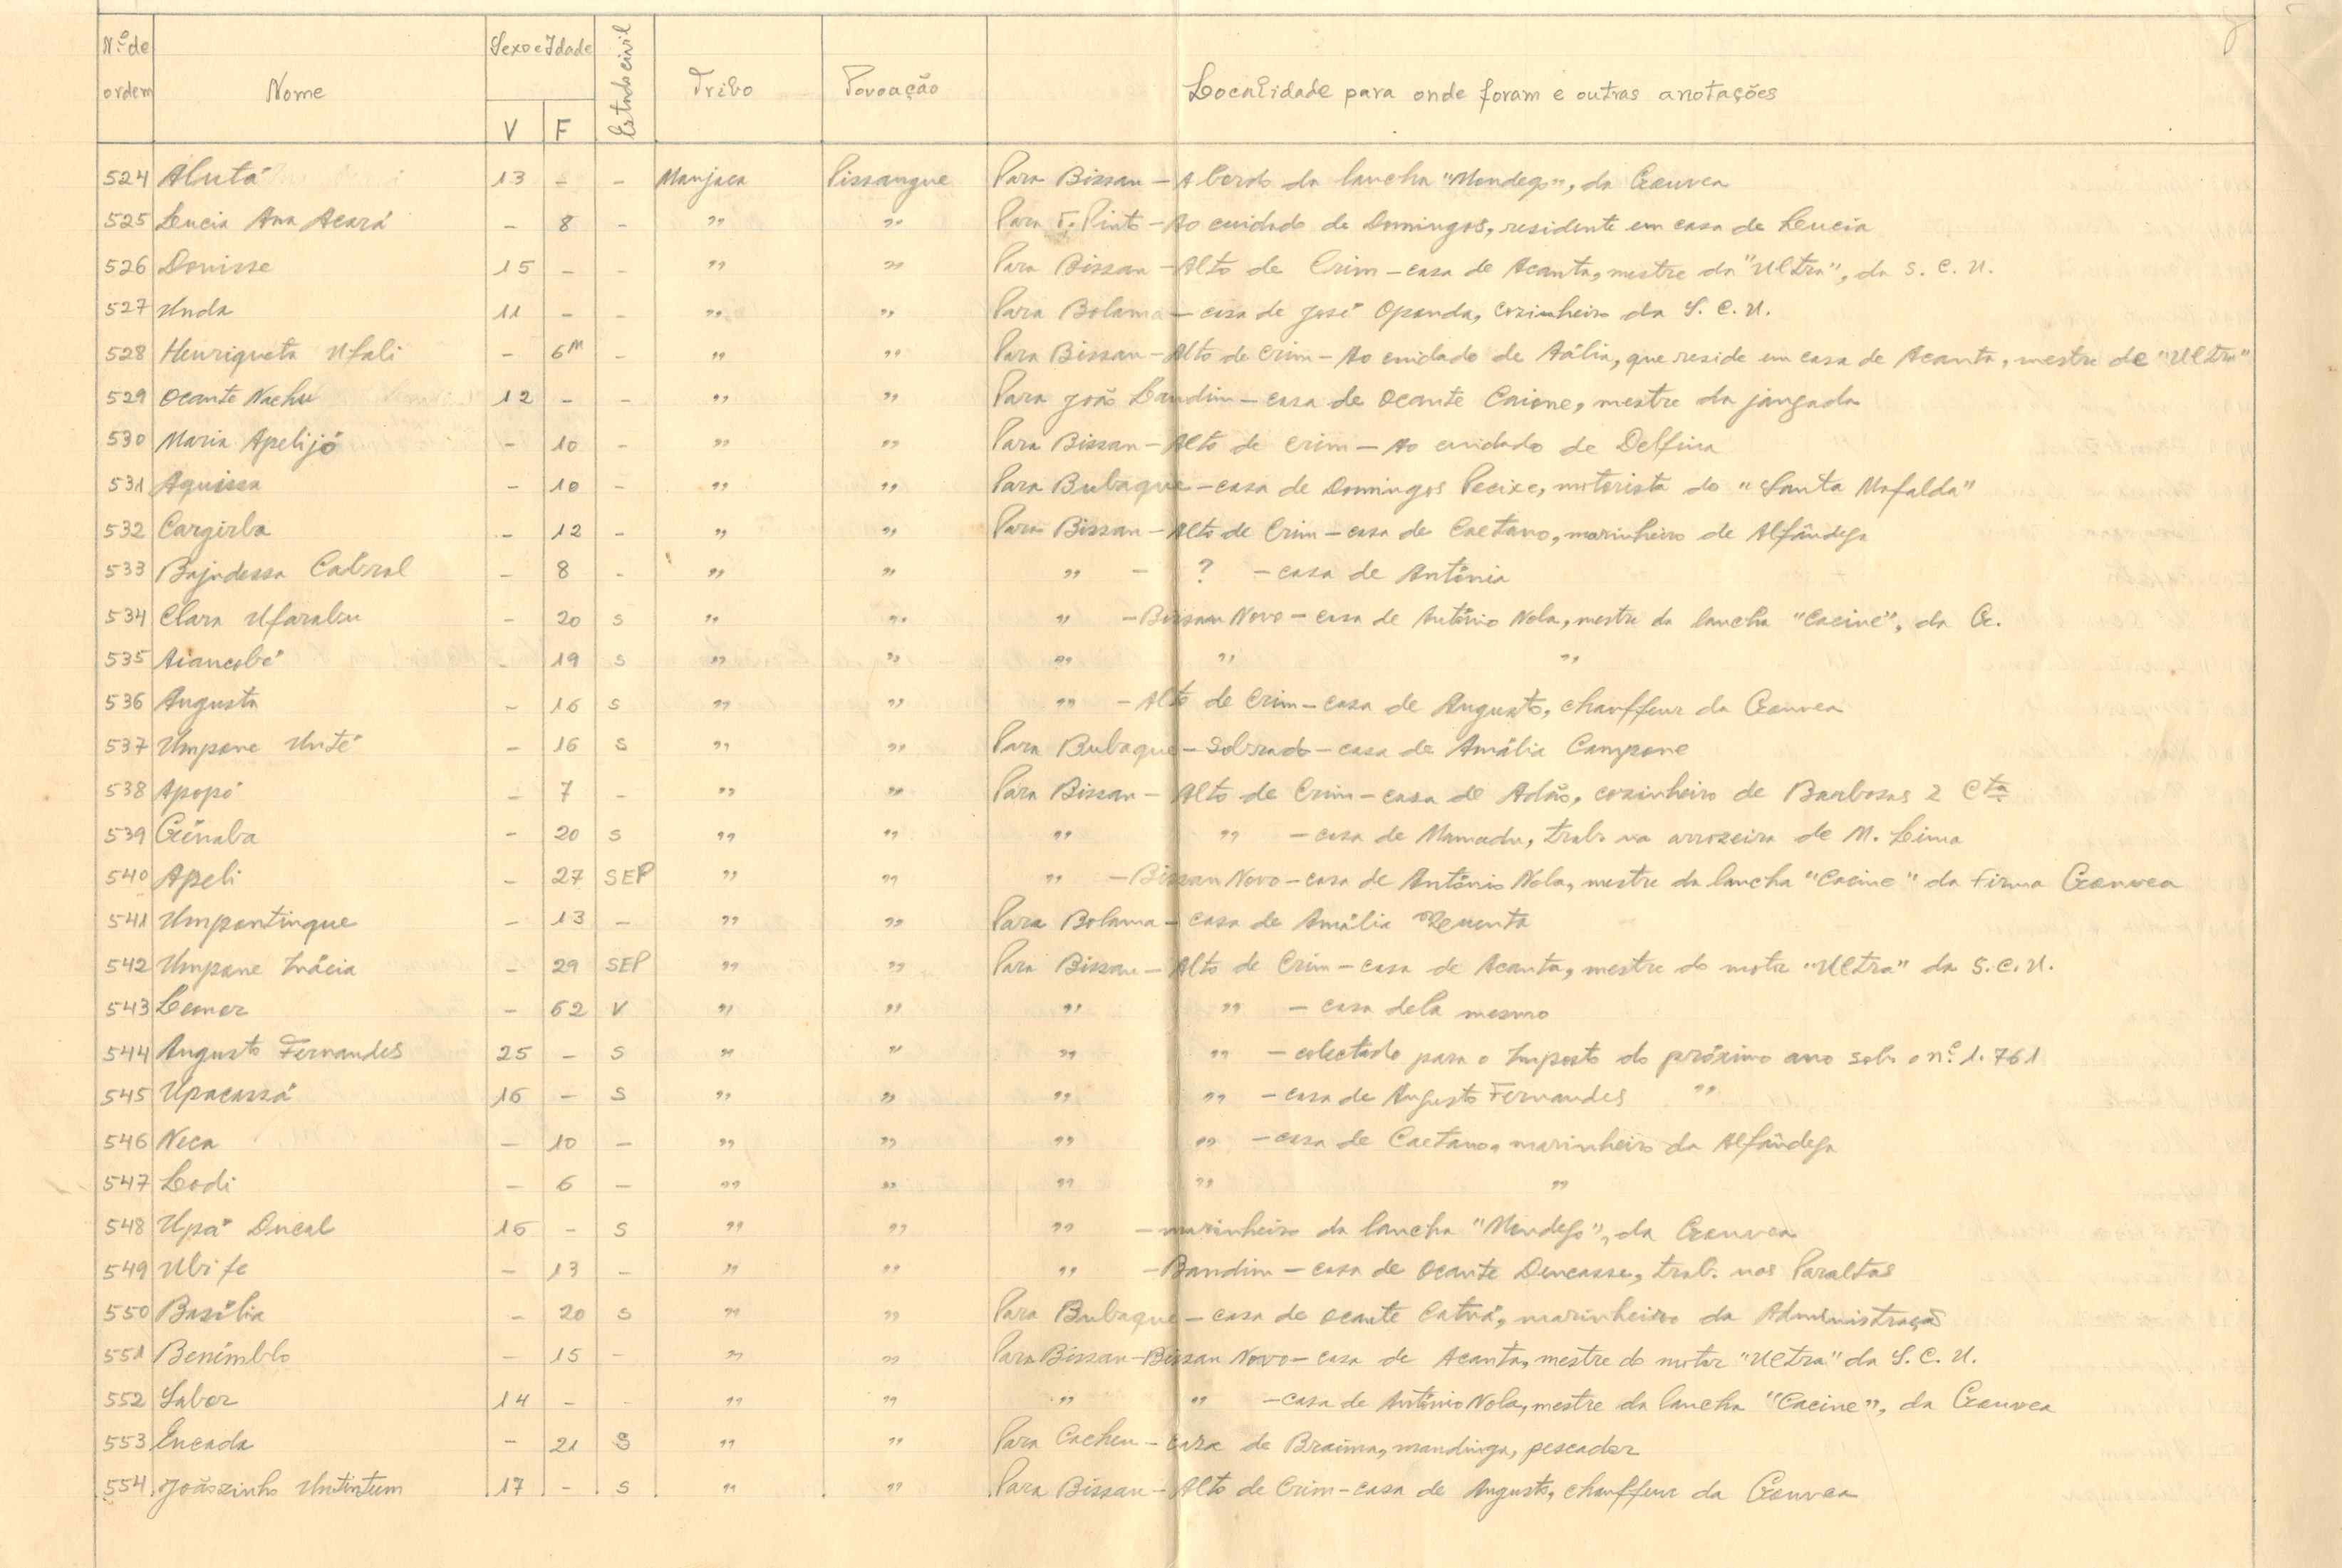 Nº de ordem | Nome | Sexo e Idade V | F | Estado civil | Tribo | Povoação | Localidade para onde foram e outras anotações
524 Alutá 13 - - Manjaca Pissangue Para Bissau - A bordo da lancha "Mondego", da Gouvea
525 Lucia Ana Acará - 8 - " " Para T. Pinto - Ao cuidado de Domingos, residente em casa de Lucia
526 Donisse 15 - - " " Para Bissau - Alto de Crim - casa de Acanta, mestre da "Ultra", da S. C. U.
527 Unda 11 - - " " Para Bolama - casa de José Opanda, cozinheiro da S. C. U.
528 Henriqueta Ufali - 6M - " " Para Bissau - Alto de Crim - Ao cuidado de Adália, que reside em casa de Acanta, mestre de "Ultra"
529 Ocante Nachu 12 - - " " Para João Landim - casa de Ocante Caione, mestre da jangada
530 Maria Apelijó - 10 - " " Para Bissau - Alto de Crim - Ao cuidado de Delfina
531 Aquissa - 10 - " " Para Bubaque - casa de Domingos Pecixe, motorista do "Santa Mafalda"
532 Cargirba - 12 - " " Para Bissau - Alto de Crim - casa de Caetano, marinheiro de Alfândega
533 Bajudessa Cabral - 8 - " " " - ? - casa de Antónia
534 Clara Ufarabu - 20 S " " " - Bissau Novo - casa de António Nola, mestre da lancha "Cacine", da G.
535 Aiancobé - 19 S " " " " "
536 Augusta - 16 S " " " - Alto de Crim - casa de Augusto, chauffeur da Gouvea
537 Umpane Unté - 16 S " " Para Bubaque - Sobrado - casa de Amália Campone
538 Apopó - 7 - " " Para Bissau - Alto de Crim - casa de Adão, cozinheiro de Barbosas 2 Cta
539 Génaba - 20 S " " " " - casa de Mamadu, trab. na arrozeira de M. Lima
540 Apeli - 27 SEP " " " - Bissau Novo - casa de António Nola, mestre da lancha "Cacine" da Firma Gouvea
541 Umpontingue - 13 - " " Para Bolama - casa de Amália
542 Umpane Inácia - 29 SEP " " Para Bissau - Alto de Crim - casa de Acanta, mestre do motor "Ultra" da S. C. U.
543 Leonor - 62 V " " " " - casa dela mesmo
544 Augusto Fernandes 25 - S " " " " - colectado para o Imposto do próximo ano sob o nº 1.761
545 Upacassá 16 - S " " " " - casa de Augusto Fernandes "
546 Neca - 10 - " " " " - casa de Caetano, marinheiro da Alfândega
547 Lodi - 6 - " " " " "
548 Upá Ducal 16 - S " " " - marinheiro da lancha "Mondego", da Gouvea
549 Ubife - 13 - " " " - Bandim - casa de Ocante Dencasse, trab. nos Paraltas
550 Basília - 20 S " " Para Bubaque - casa de Ocante Catuá, marinheiro da Administração
551 Benímblo - 15 - " " Para Bissau - Bissau Novo - casa de Acanta, mestre do motor "Ultra" da S. C. U.
552 Sabor 14 - - " " " " - casa de António Nola, mestre da lancha "Cacine", da Gouvea
553 Encada - 21 S " " Para Cacheu - casa de Braima, mandinga, pescador
554 Joãozinho Untintum 17 - S " " Para Bissau - Alto de Crim - casa de Augusto, chauffeur da Gouvea